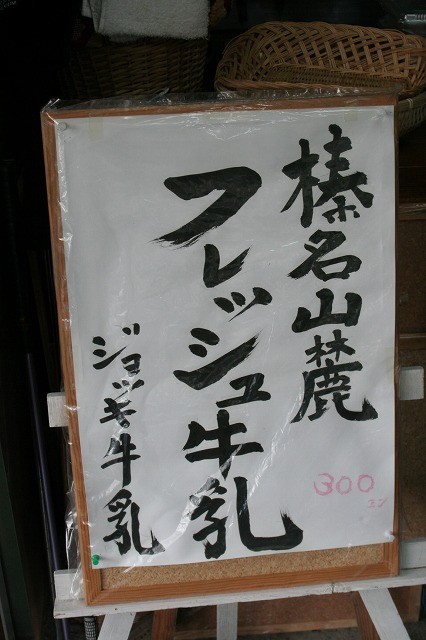 榛名山麓
フレッシュ牛乳
ジョッキ牛乳
300
エン